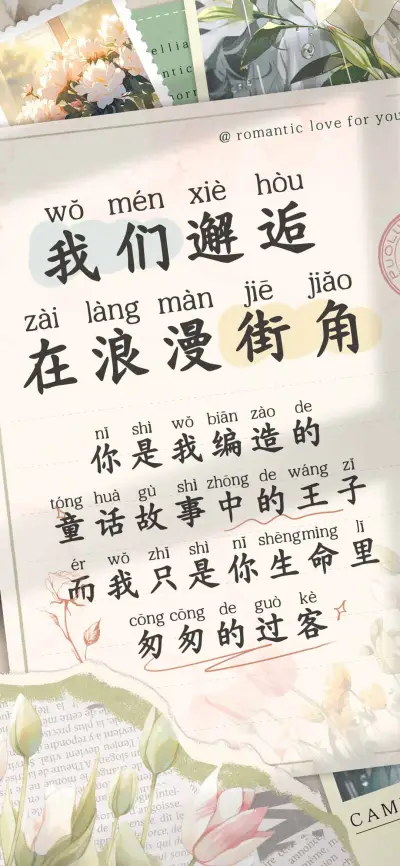 @ romantic love for you
wǒ mén xiè hòu
我们邂逅
zài làng màn jiē jiǎo
在浪漫街角
nǐ shì wǒ biān zào de
你是我编造的
tóng huà gù shì zhōng de wáng zǐ
童话故事中的王子
ér wǒ zhǐ shì nǐ shēng mìng lǐ
而我只是你生命里
cōng cōng de guò kè
匆匆的过客